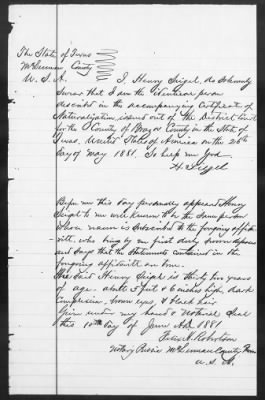 The State of Texas
McLennan County
U. S. A. I, Henry Seigel, do Solemnly
Swear that I am the identical person
described in the accompanying Certificate of
Naturalization issued out of the District Court
for the County of Brazos County in the State of
Texas United States of America on the 26th
day of May 1881. So help me God
H. Seigel
Before me this day personally appeared Henry
Seigel to me well known to be the same person
whose name is subscribed to the forgoing affida-
vit, who being by me first duly sworn deposes
and says that the statements contained in the
forgoing affidavit are true.
The Said Henry Seigel is thirty five years
of age. about 5 feet & 6 inches high, dark
complexion, brown eyes, & black hair
Given under my hand & Notarial Seal
this 10th day of June A.D. 1881
Robertson
Notary Public McLennan County Texas
U. S. A.